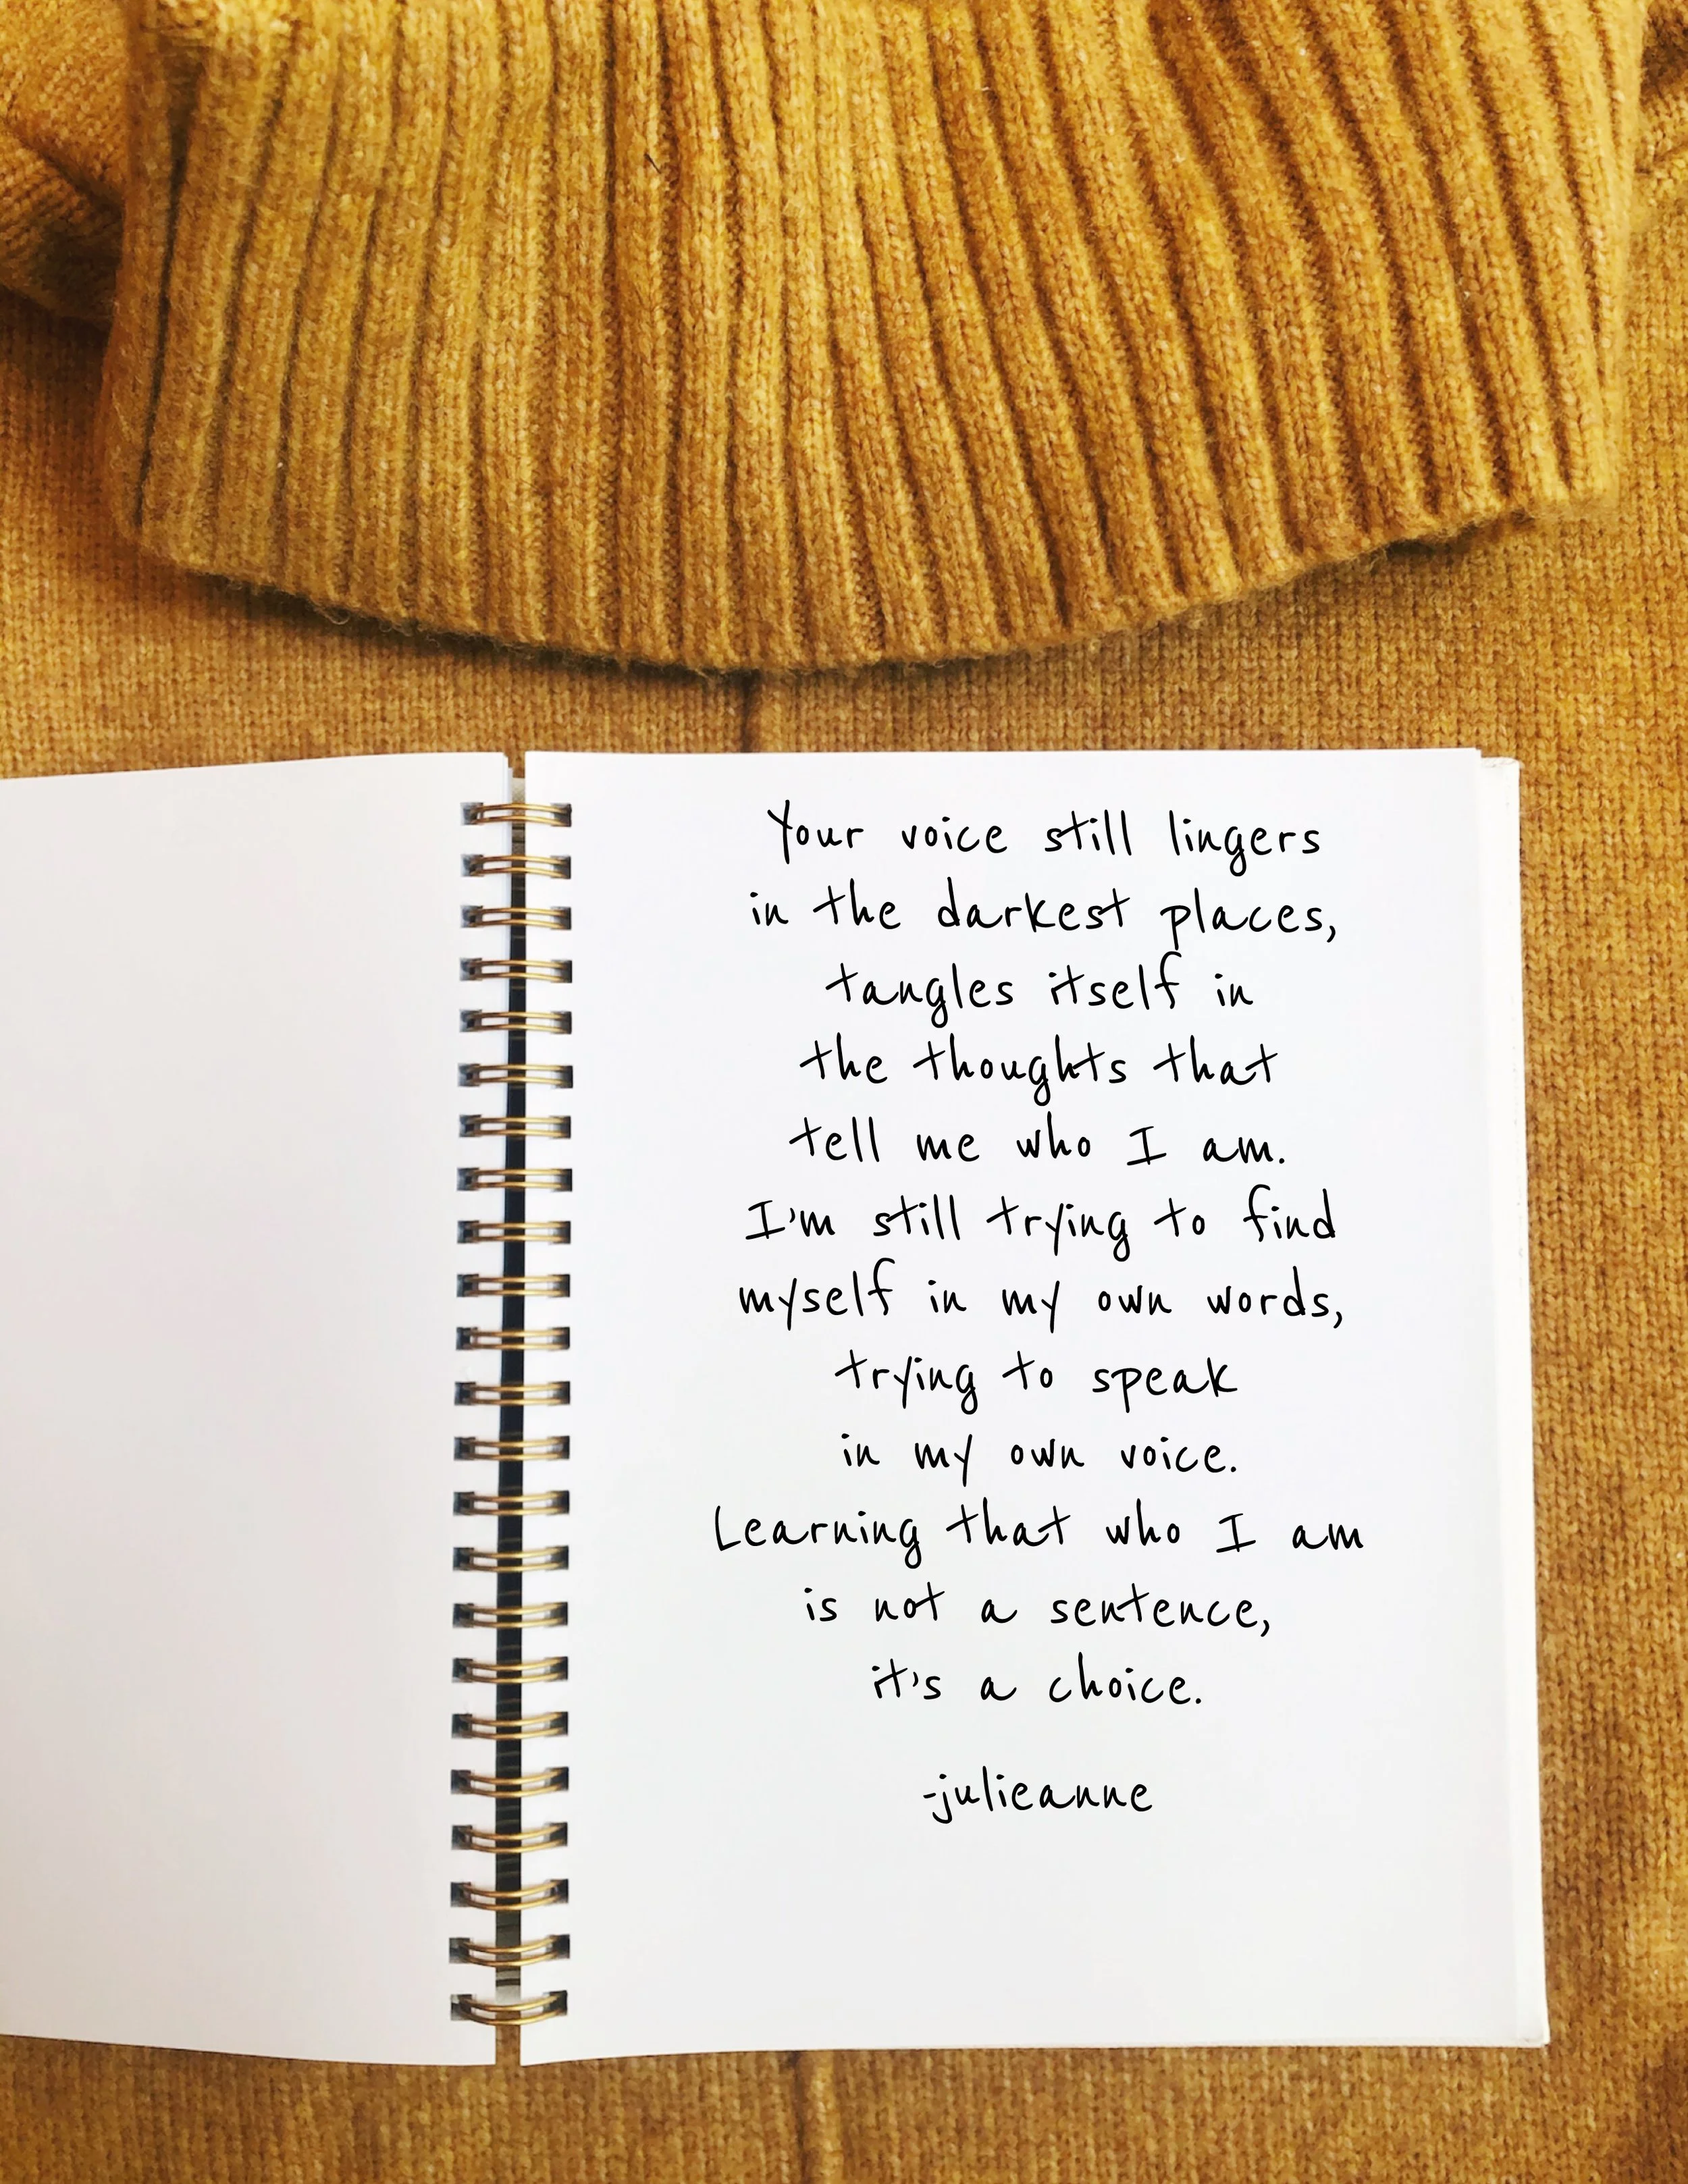 Your voice still lingers
in the darkest places,
tangles itself in
the thoughts that
tell me who I am.
I'm still trying to find
myself in my own words,
trying to speak
in my own voice.
Learning that who I am
is not a sentence,
it's a choice.
-julieanne